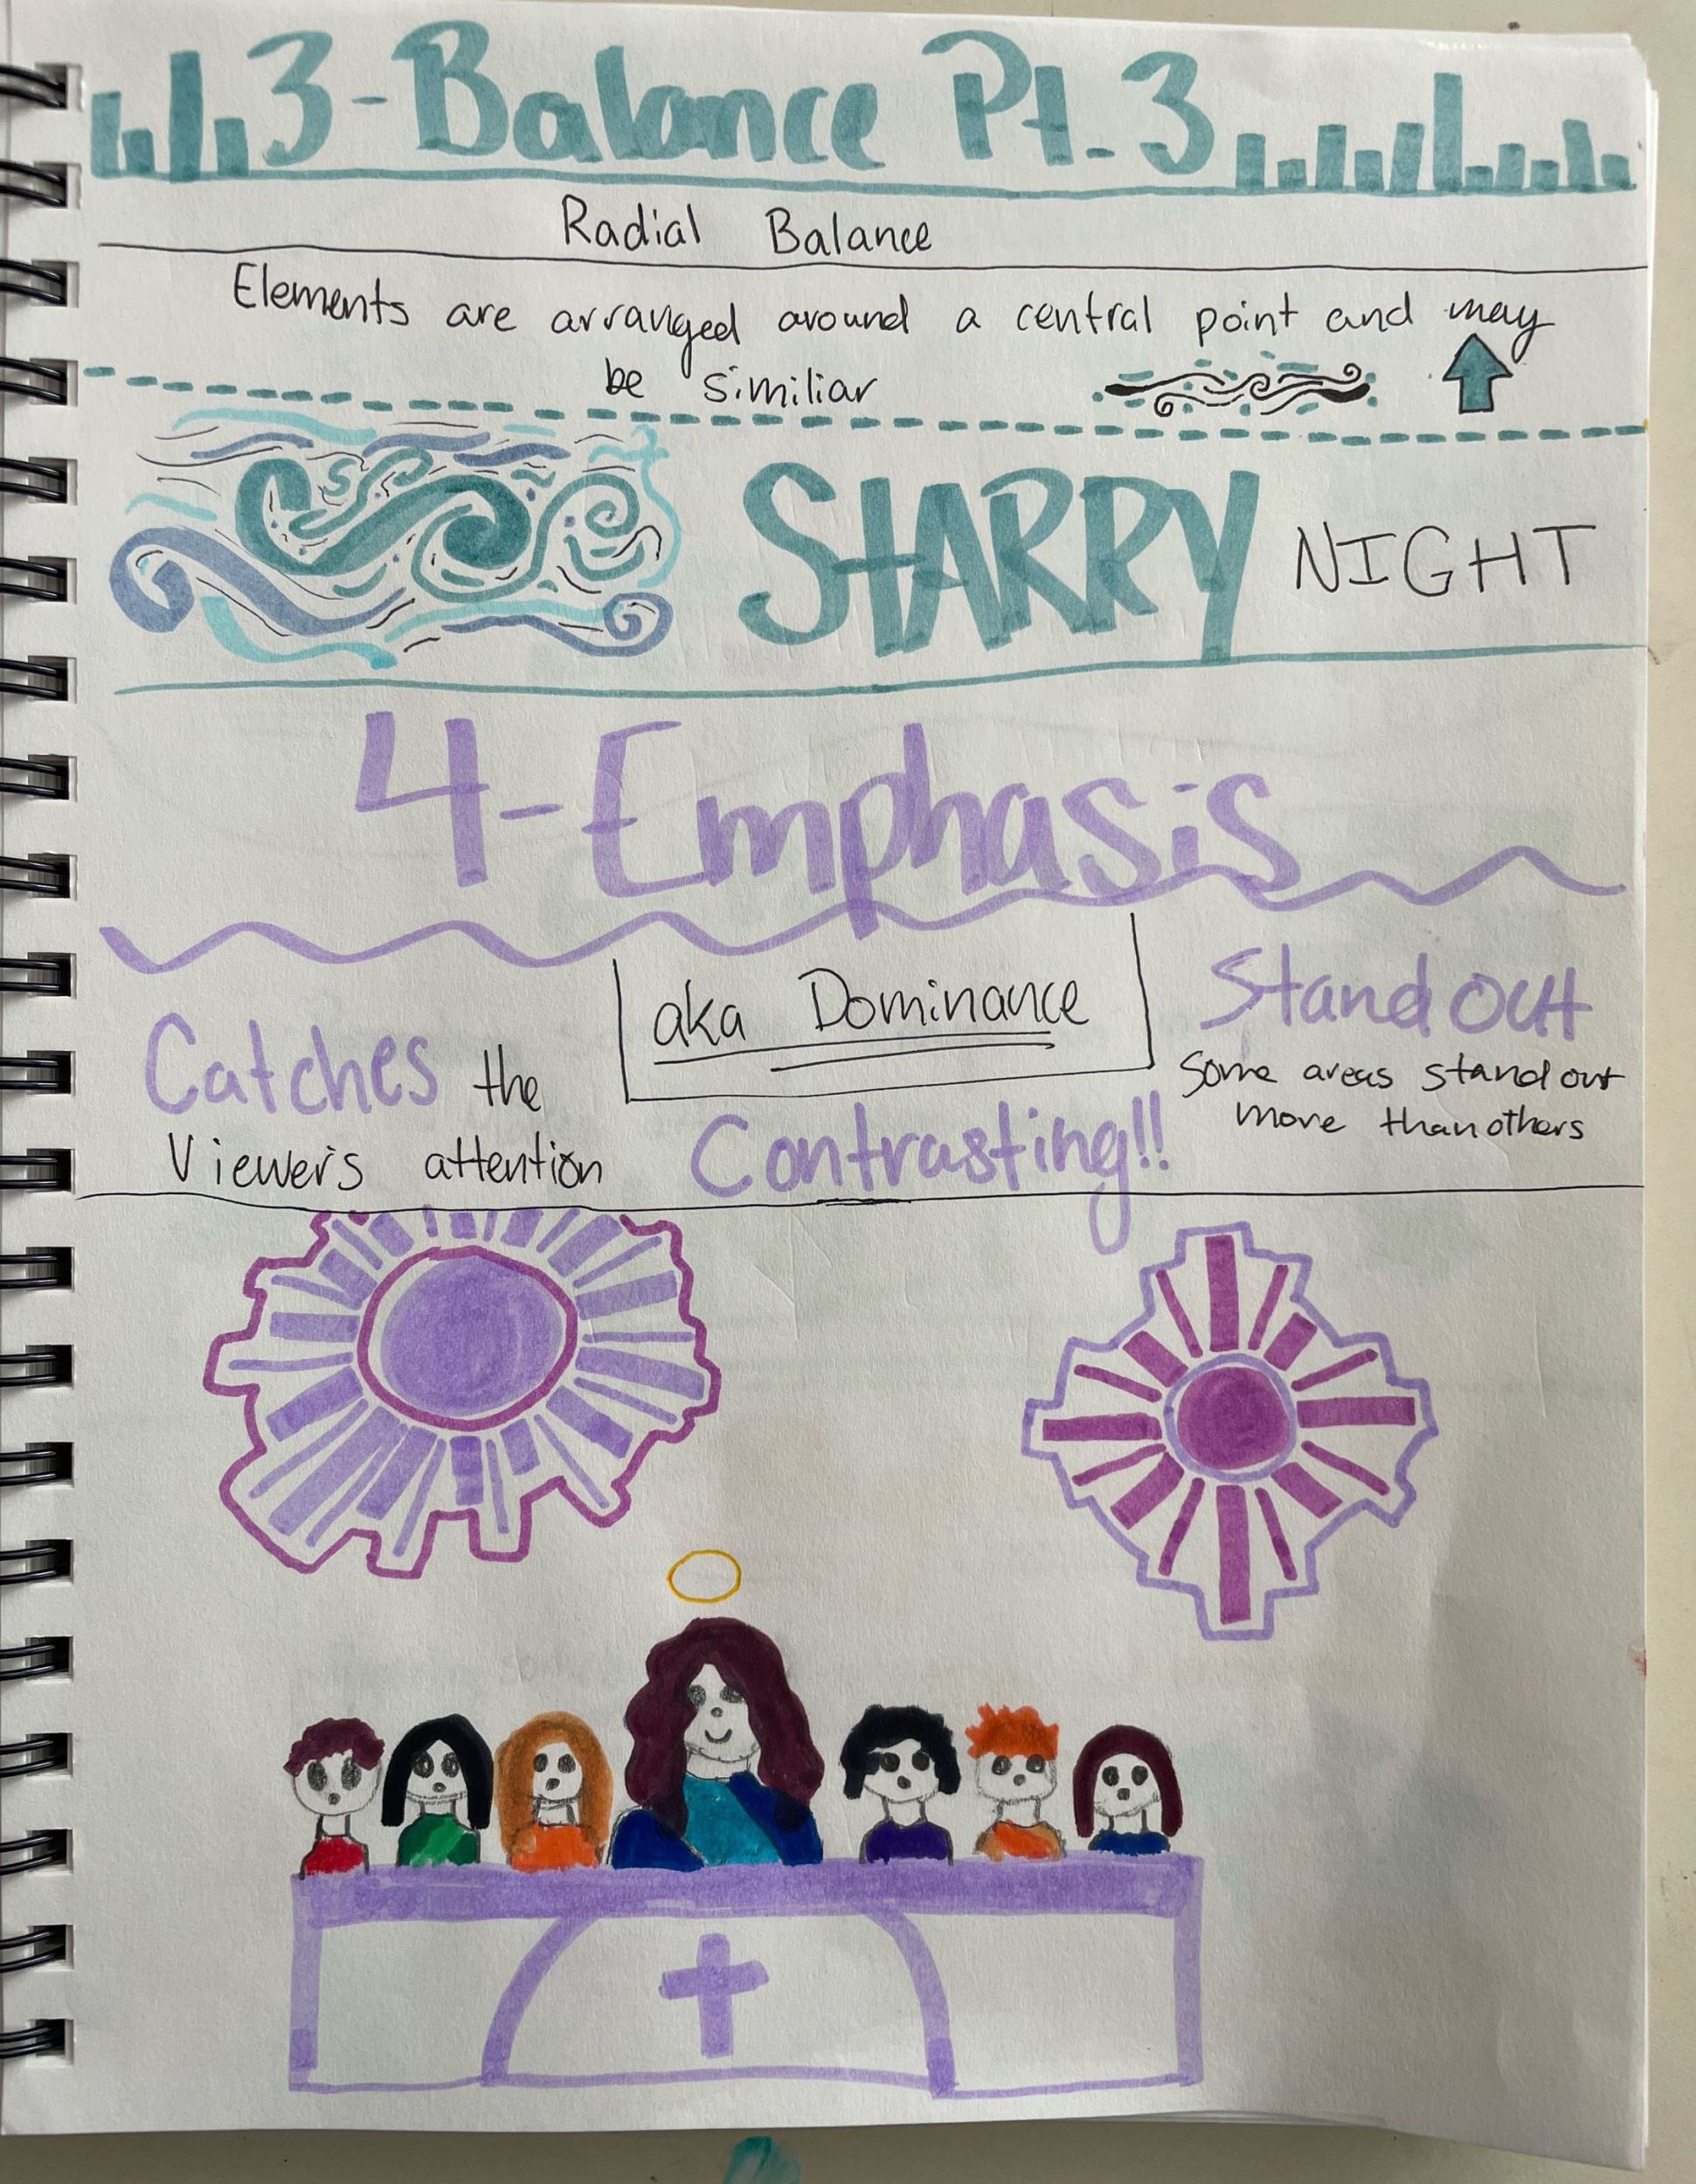 3-Balance Pt. 3
Radial Balance
Elements are arranged around a central point and may
be similiar
STARRY NIGHT
4-Emphasis
aka Dominance
Stand out
Catches the
Some areas stand out
more than others
Viewer's attention
Contrasting!!